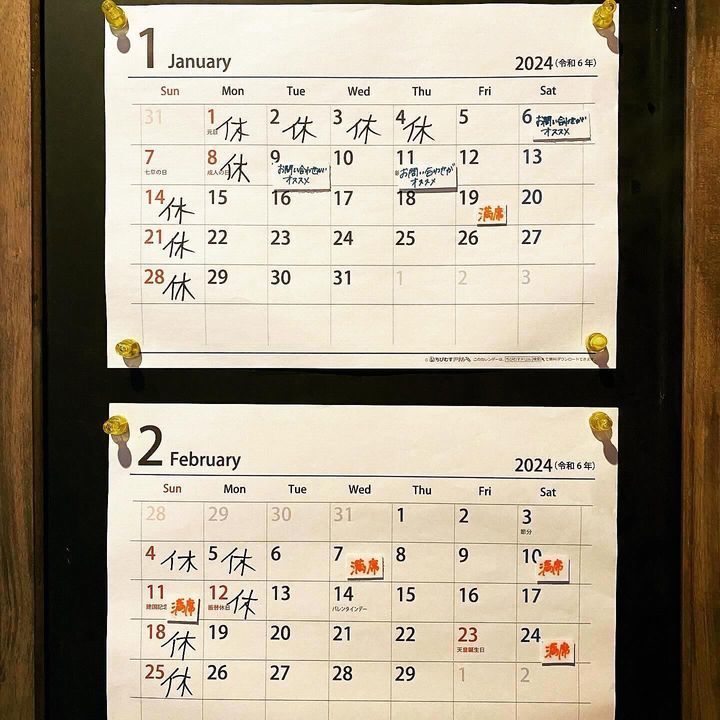 1 January 2024 (令和6年)
Sun Mon Tue Wed Thu Fri Sat
31 1 休 2 休 3 休 4 休 5 6 お問い合わせが
元日 オススメ
7 8 休 9 お問い合わせが 10 11 お問い合わせが 12 13
七草の日 成人の日 オススメ オススメ
14 休 15 16 17 18 19 満席 20
21 休 22 23 24 25 26 27
28 休 29 30 31 1 2 3
ちびむすドリル このカレンダーは、 で無料ダウンロードできます。
2 February 2024 (令和6年)
Sun Mon Tue Wed Thu Fri Sat
28 29 30 31 1 2 3
節分
4 休 5 休 6 7 満席 8 9 10 満席
11 満席 12 休 13 14 15 16 17
建国記念 振替休日 バレンタインデー
18 休 19 20 21 22 23 24 満席
天皇誕生日
25 休 26 27 28 29 1 2